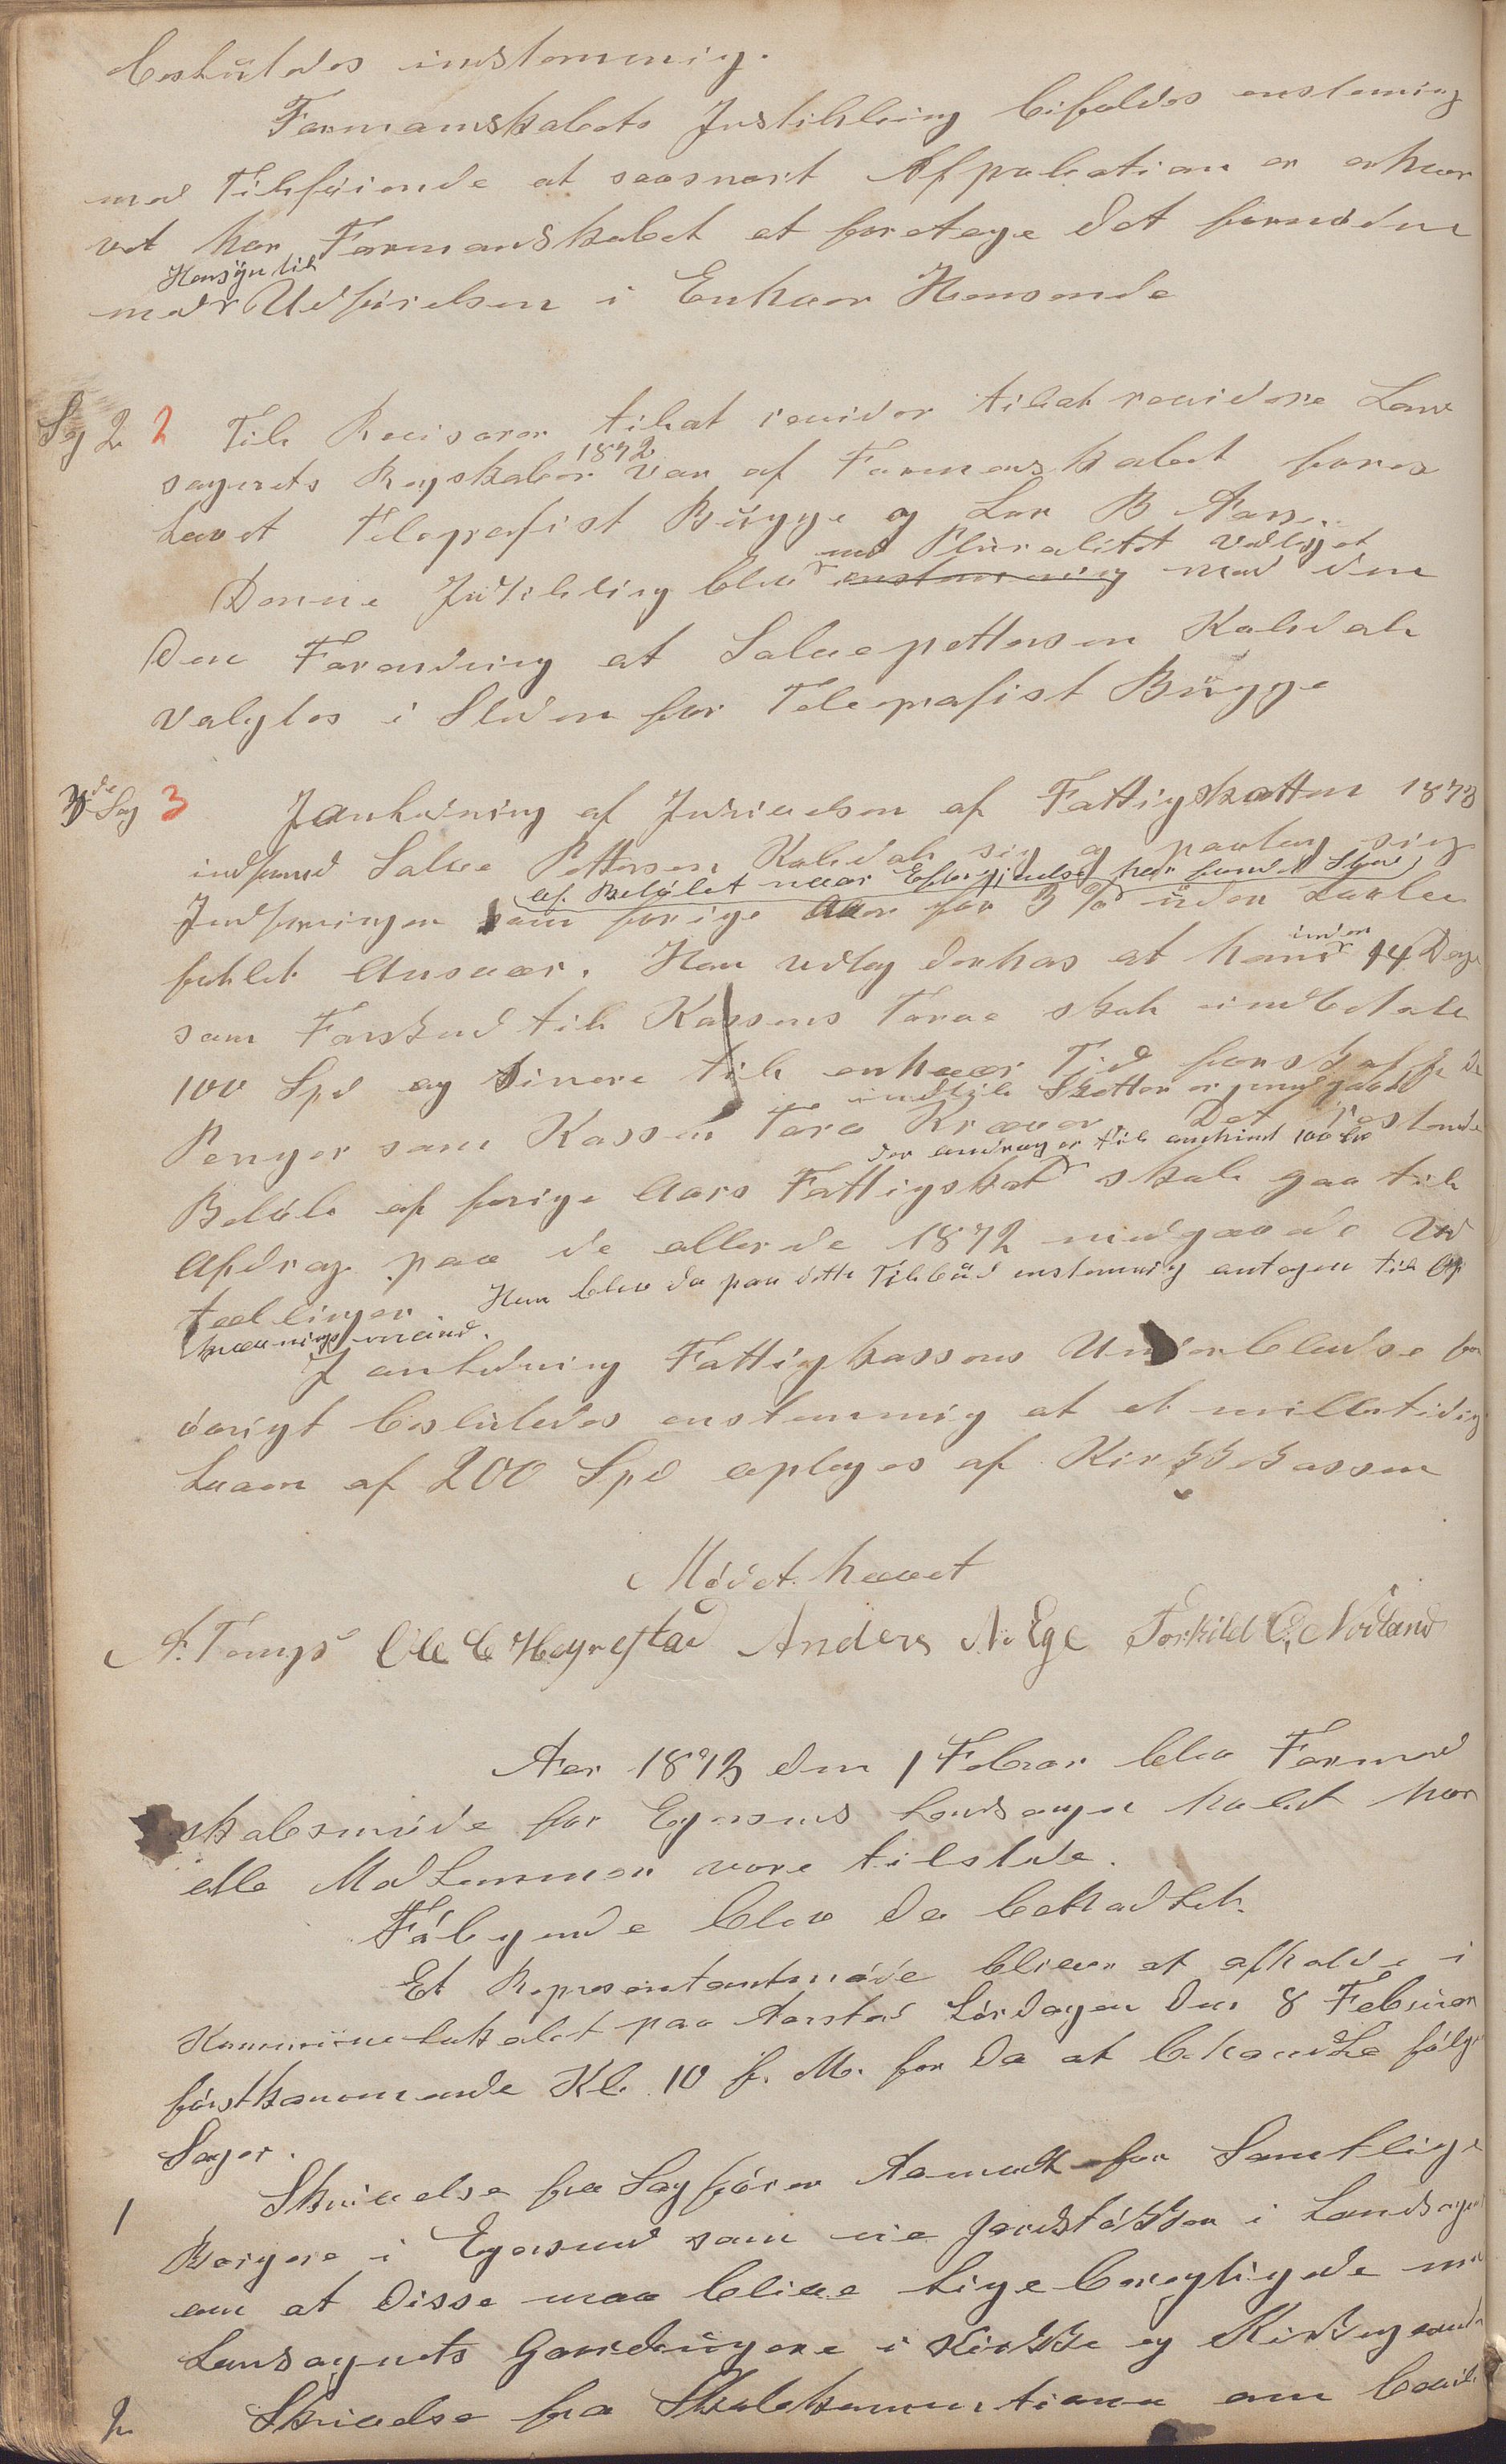 besluttedes indstemmig.
Formanskabets Indstilling bifaldes enstemig
med Tilføiende at saasnart Afprobation er erhver
vet har Formandskabet at foretage det fornødne
Hensyn til
med Udførelsen i Enhver Hensende
Sg 2 2 Til Revisorer tilat revider tilat revidere Lan
1872
sognets Regskaber var af Formanskabet fores
laaet Telegrafist Bügge og Lar B Aase
med Pluralitet vedtaget
Denne Indstilling blev enstemmig med den
Den Forandring at Salve pettersen Kalvdal
valgtes i Steden for Telegrafist Bügge
3de Sag 3 I anledning af Indrivelsen af Fattigskatten 1873
indfand Salve Pettersen Kalvdal sig og paatog sig
af Beløbet naar Eftergivelse har fundet Sted
Indforingen som forige Aar for 3 % uden
Ansvar. Han vedtog derhos at han inden 14 Dage
som Forskud til Kassens Tarve skal indbetale
100 Spd og sinere til enhver Tid forskaffe de
indtil Skatten er
Penger som Kassens Tarv Kræver Det restende
der andrager til omkring 100 Spd
Beløb af forige Aars Fattigskat skal gaa til
Afdrag paa de allerede 1872 medgaaede Ud
tællinger. Han blev da paa dette Tilbud enstemmig antagen til Op
kravningsmand.
I anledning Fattigkassens Underbalandse for
øvrigt besluttedes enstemmig at et midlertidig
Laan af 200 Spd optages af Kirkekassen
Mødet hævet
A. Tengs Ole C Høgrestad Anders N. Ege Torkild O. Nodland
Aar 1873 den 1 Febrar blev Formand
skabsmøde for Egersuns Landsogn holdt hvor
alle Medlemmer vare tilstede.
Følgende blev da behadlet.
Et Representantmøde bliver at afholde i
Kommunelokalet paa Aarstad Lørdagen den 8 Februar
førstkommende Kl. 10 f. M. for da at behandle følge
Sager.
1 Skrivelse fra Sagfører Aamodt for Samtlige
Borgere i Egersund som eie Jordstøkker i Landsogne
om at disse maa blive lige berettigede med
Landsognets Gaardbrugere i Kirke og Kirkegaard
2 Skrivelse fra Skolekommitionen om bevil